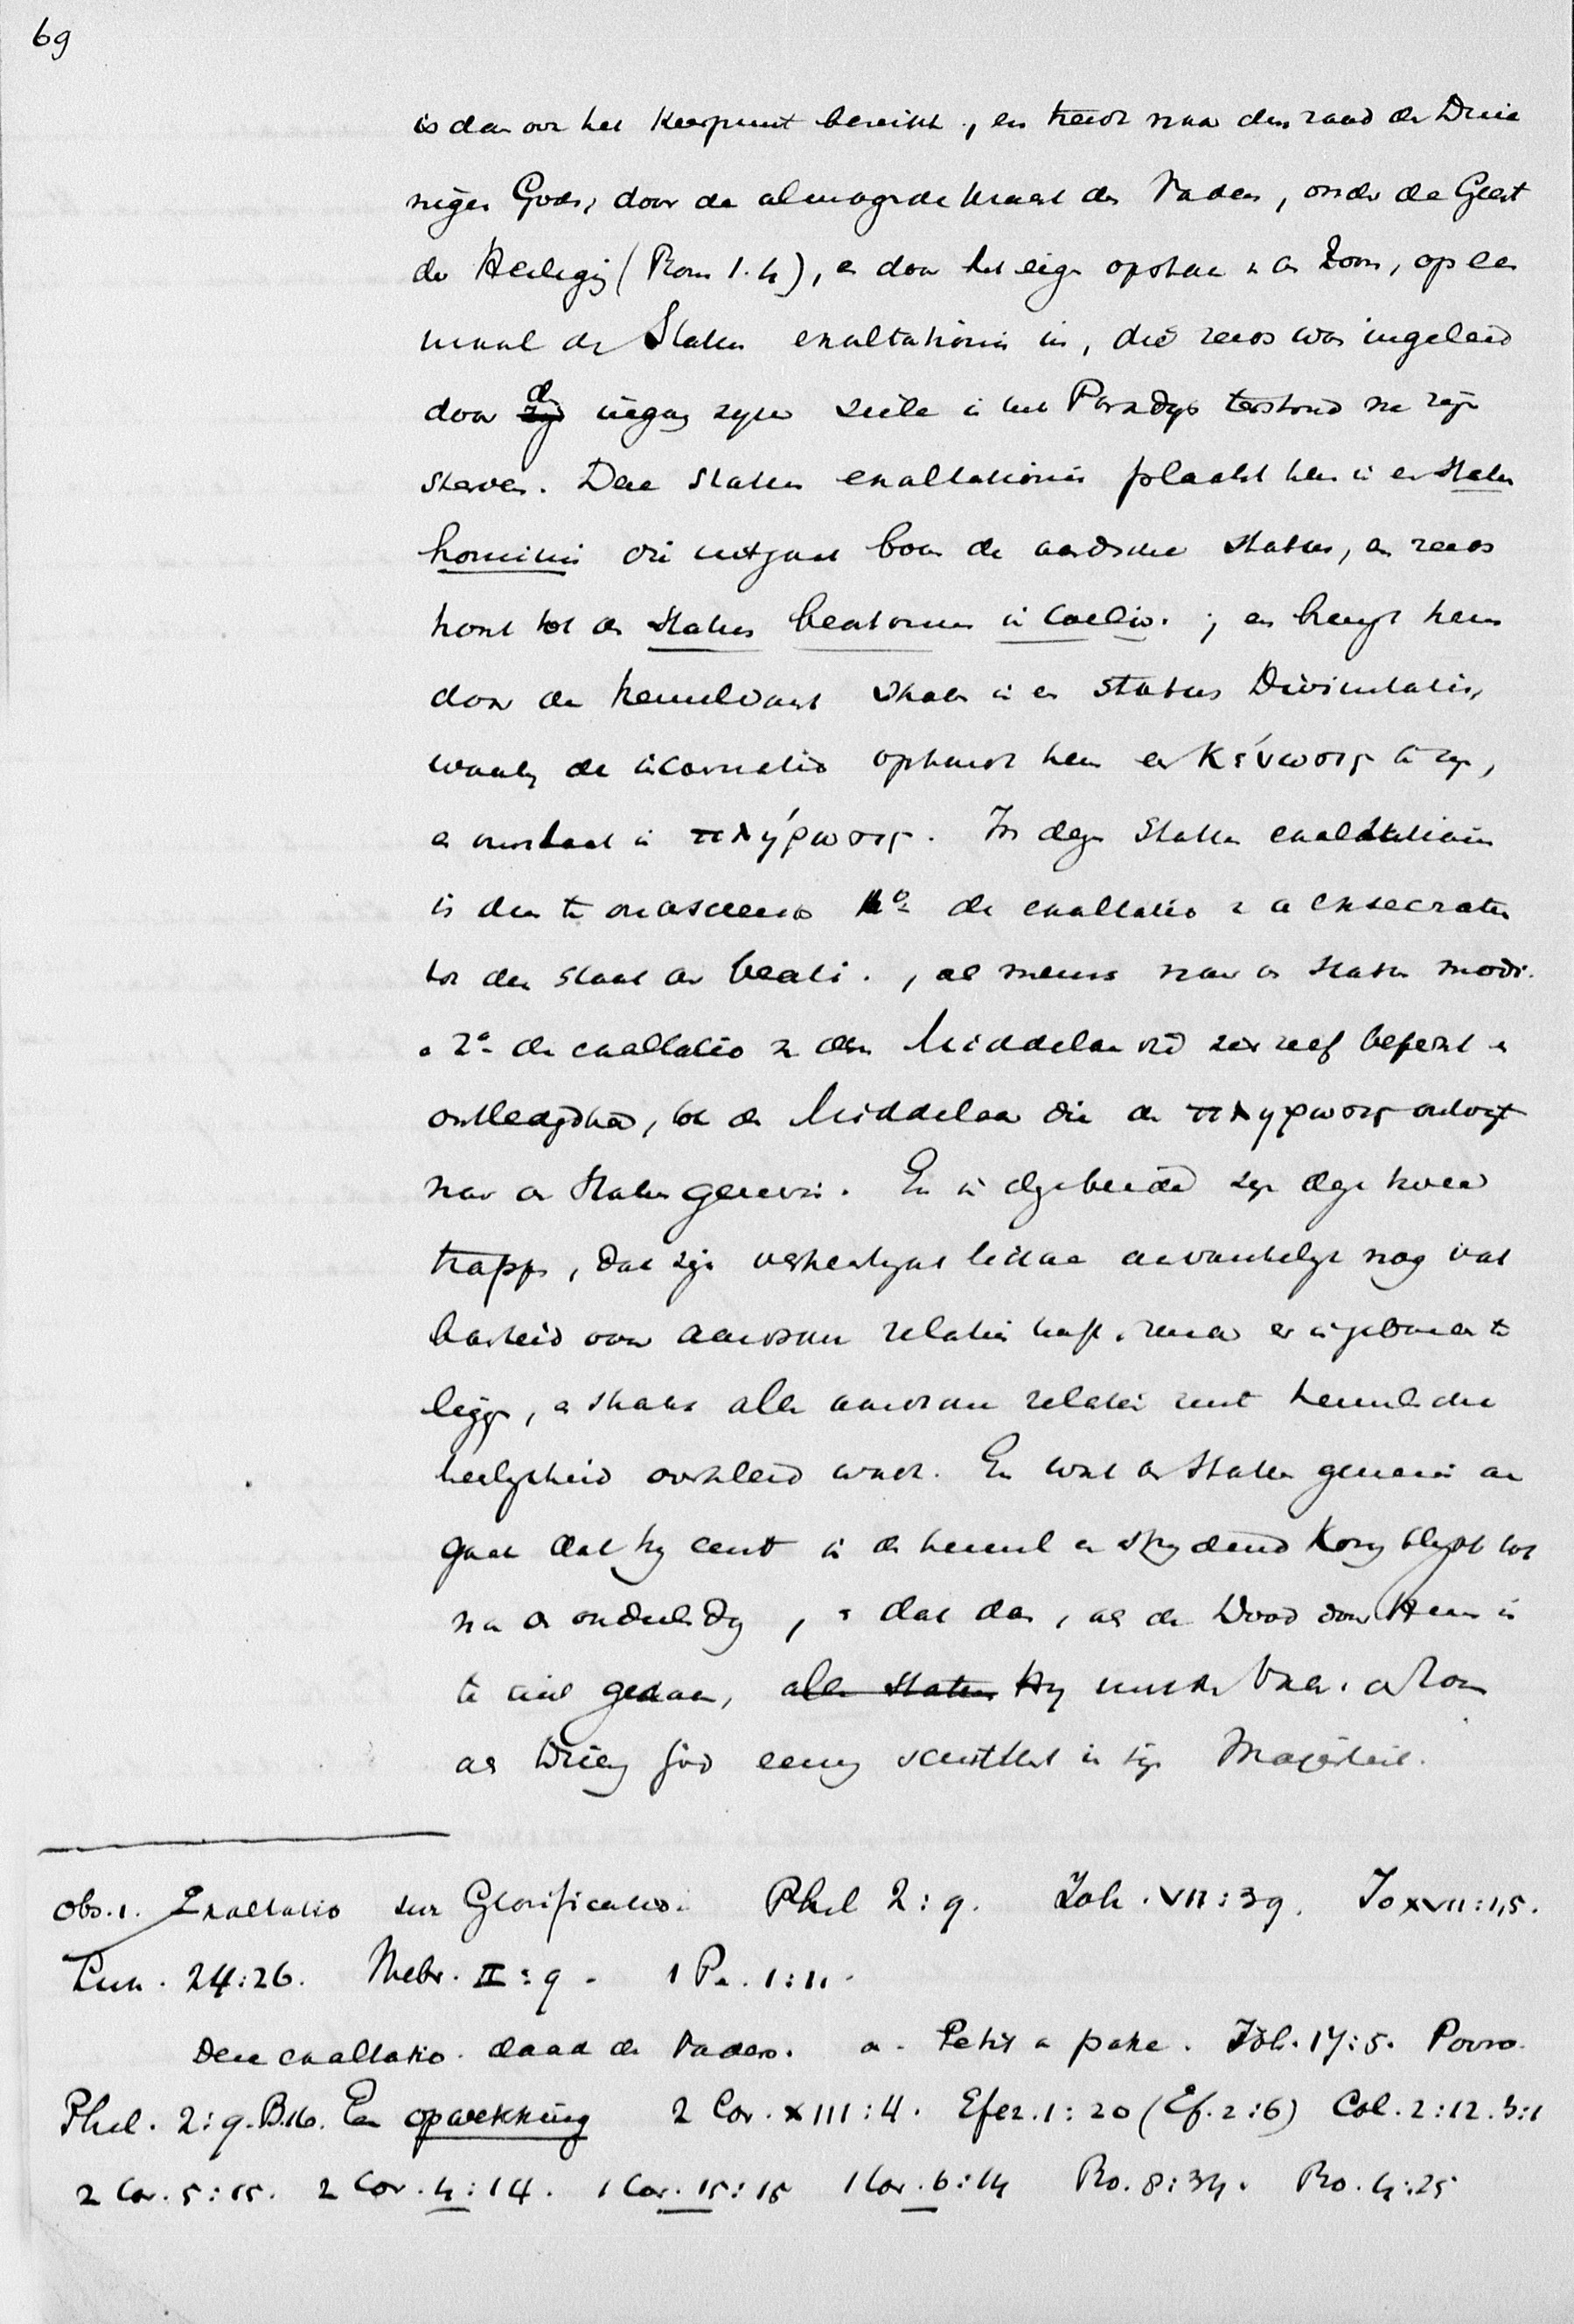 69
is dan ook het keerpunt bereikt, en treedt naar den raad des Drie
enigen Gods, door de almogende kracht des Vaders, onder de Geest
der Heiligg (Rom 1.4), en door het eigen opstaan v. d. Zoon, op een
maal de Status exaltationis in, die reeds was ingeleid
door de ingang zijner ziele in het Paradijs terstond na zijn
sterven. Deze status exaltationis plaatst hem in een Status
hominis die uitgaat boven de aardsche status, en reeds
hoort tot de Status beatorum in Caelis.; en brengt hem
door de hemelvaart straks in een status Divinitatis,
waarbij de incarnatio ophoudt hem een κένωσις te zijn,
en overslaat in πλήρωσις. In deze Status exaltationis
is dus te onderscheiden 1o de exaltatio v. d.
tot den staat der beati., als mensch naar de status modi.
2o de exaltatio v. den Middelaar die zich zelf beperkt en
ontledigd had, tot de Middelaar die de πληρωσις ontvangt
naar de Status generis. En in deze beide zijn deze twee
trappen, dat zijn verheerlijkt lichaam aanvankelijk nog vat
baarheid voor aardsche relatie heeft, zonder er in gebonden te
liggen, en straks alle aardsche relatie met hemelsche
heerlijkheid overkleed wordt. En wat de Status generis aan
gaat dat hij eerst in de hemel een strijdend Koning blijft tot
na de oordeelsdag, en dat dan, als de Dood door Hem is
te niet gedaan, alle Status Hij met den Vader. en Zoon
als Drieenig God eeuwig schittert in zijn Majesteit.
Obs.1. Exaltatio sive Glorificatio. Phil 2:9. Joh. VII:39. Jo XVII:1,5.
Luk. 24:26. Hebr. II:9. 1 Pe. 1:11.
Deze exaltatio daad des Vaders. a. Petit a patre. Joh. 17:5. Porro
Phil. 2:9. B.16. Een opwekking 2 Cor. XIII:4. Efez. 1:20 (Ef. 2:6) Col. 2:12. 3:1
2 Cor. 5:15. 2 Cor. 4:14. 1 Cor. 15:15 1 Cor. 6:14 Ro. 8:34. Ro. 4:25